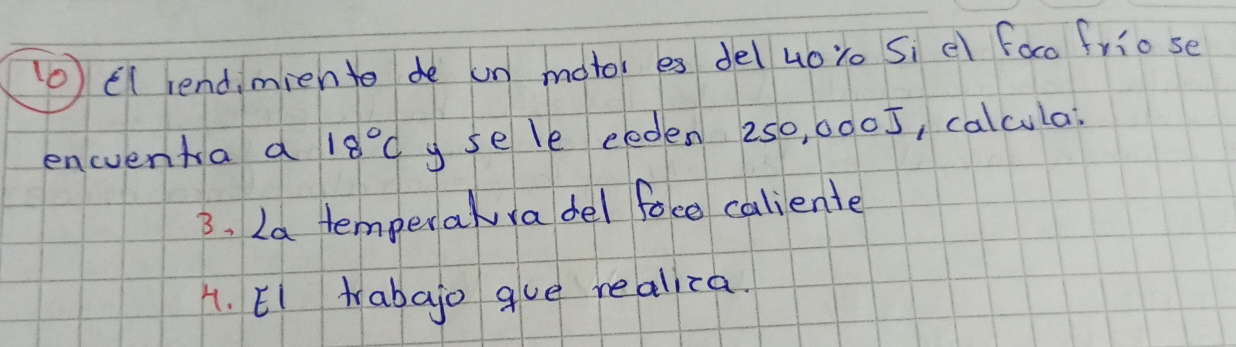 10) El rendimiento de un motor es del 40% Si el foco frío se
encuentra a 18°C y se le ceden 250,000J, calcula:
3. La temperatura del foco caliente
4. El trabajo que realiza.